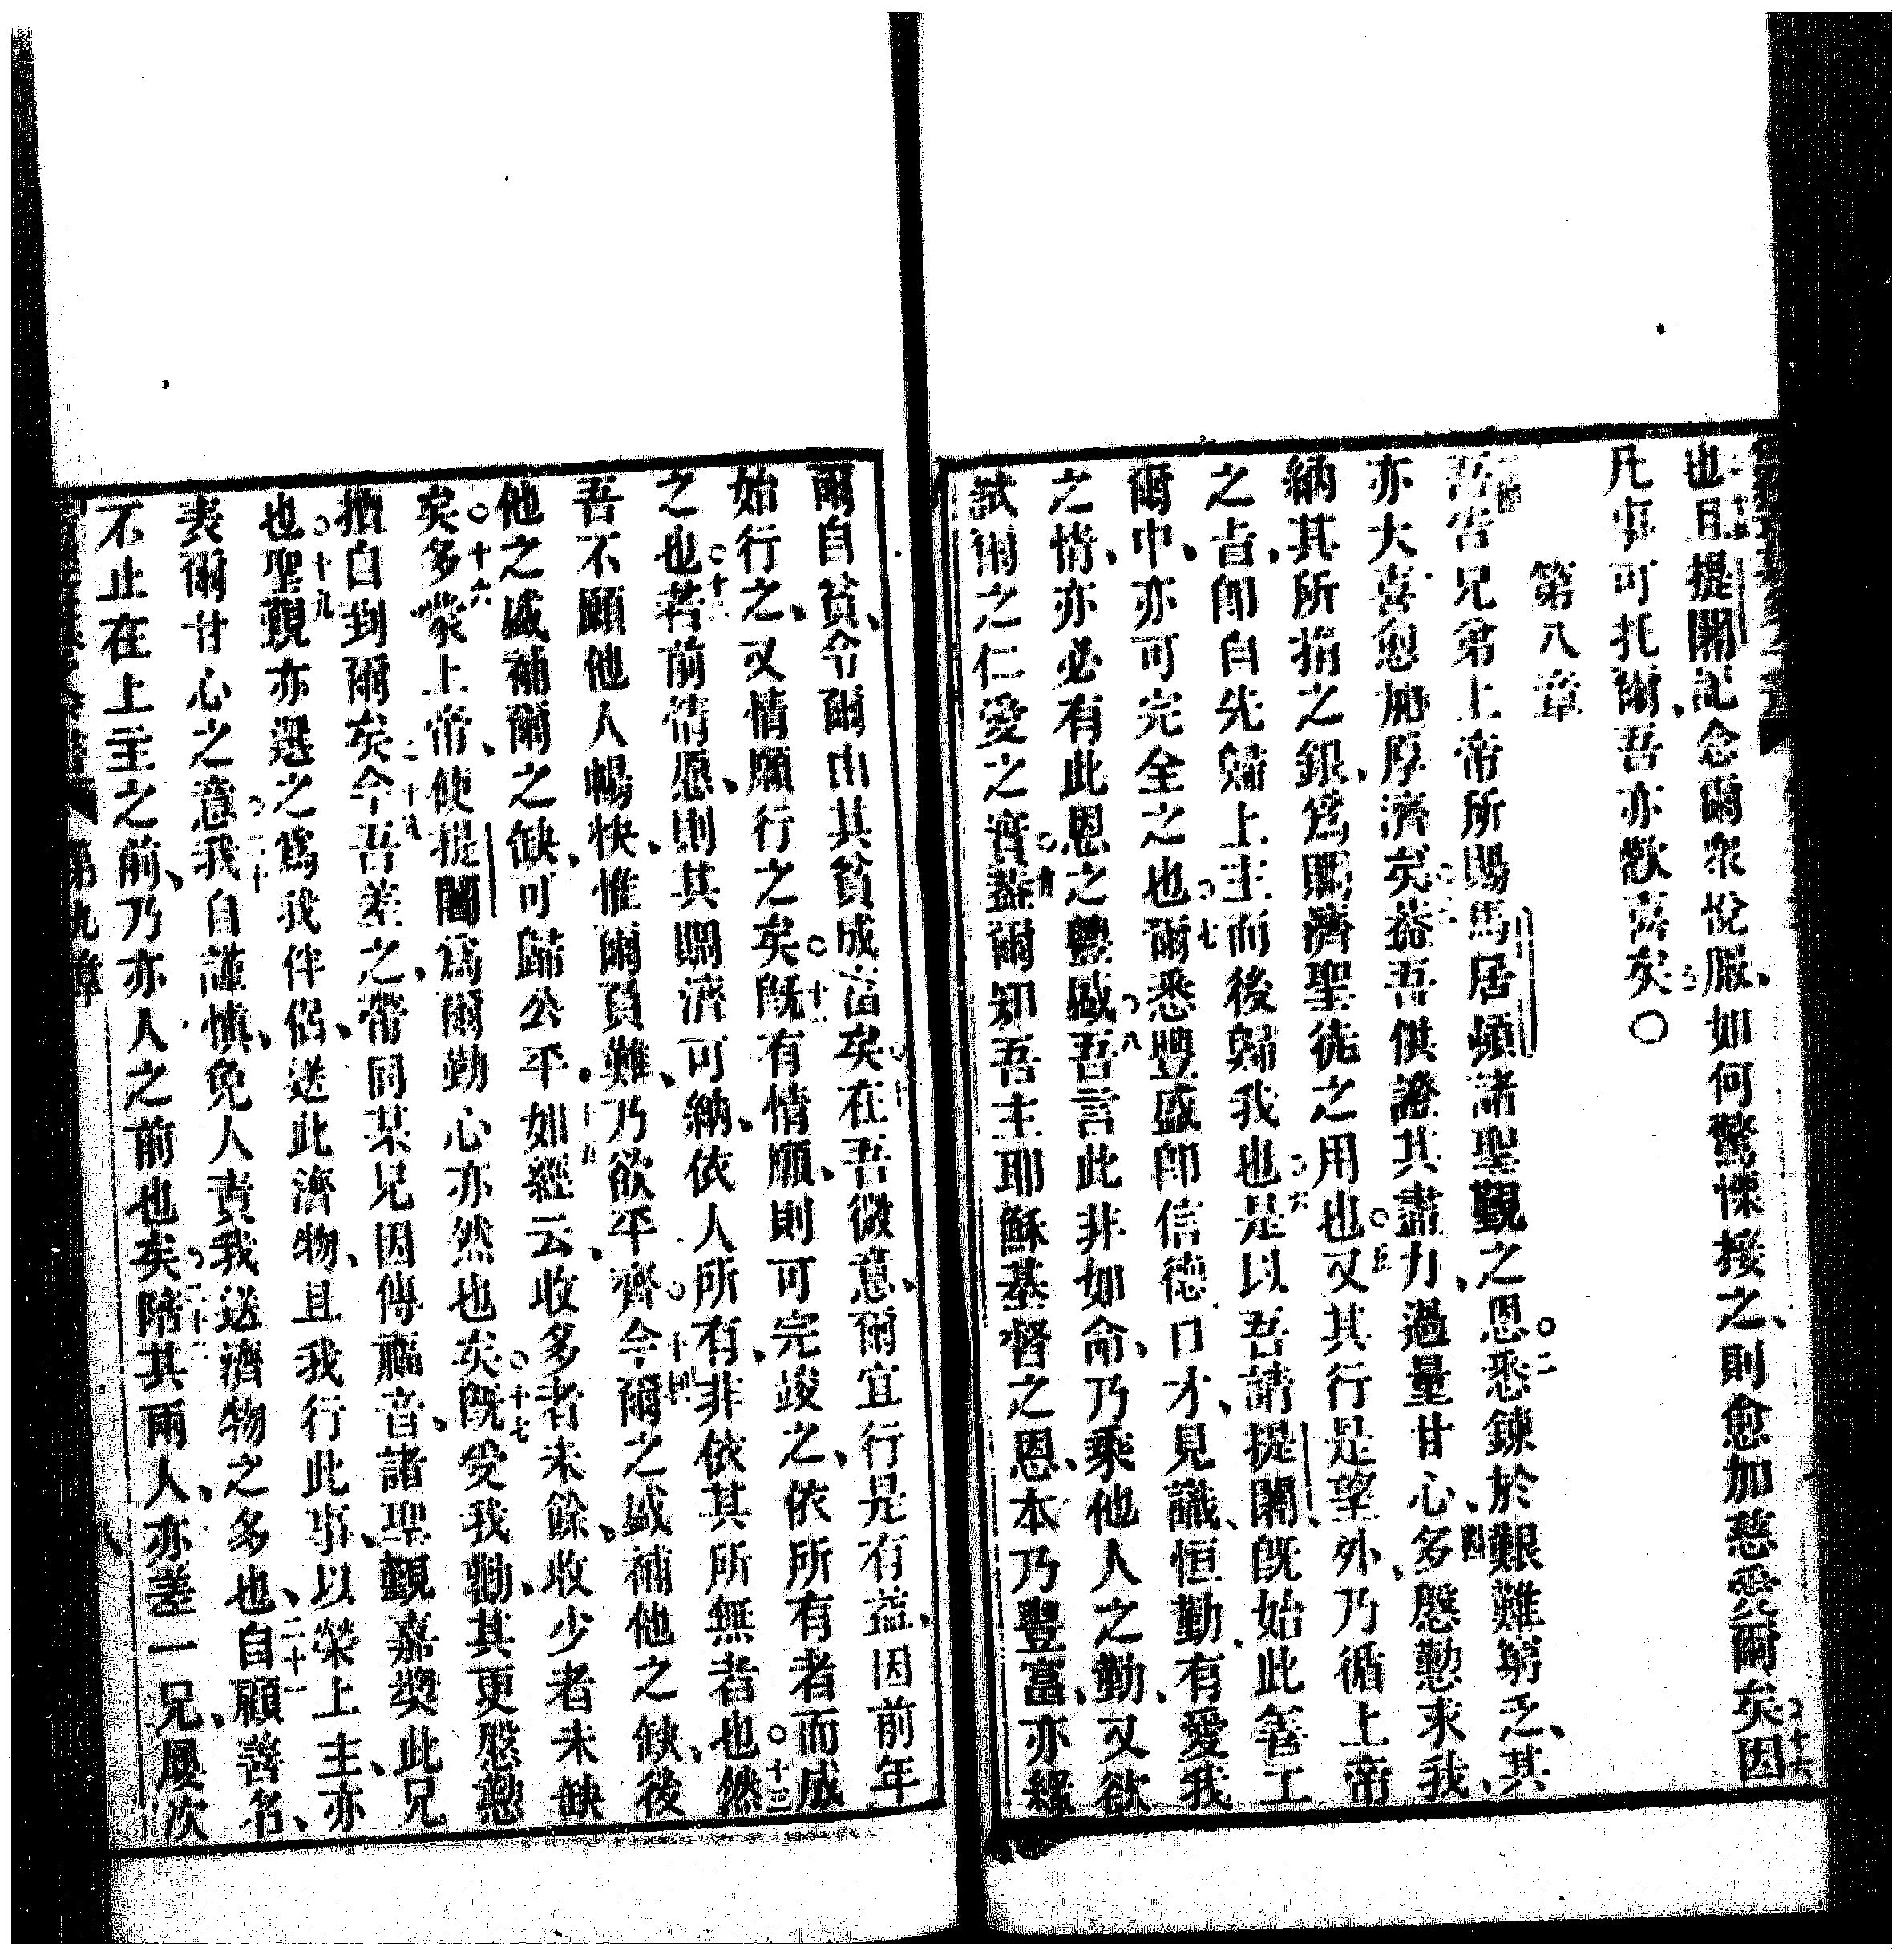 也且提闍記念爾衆悅服、如何驚慄接之、則愈加慈愛爾矣○十六因
凡事可托爾、吾亦歡喜矣○
第八章
吾告兄弟上帝所賜馬居頓諸聖觀之恩○二悉錬於艱難窮乏、其
亦大喜恕施厚濟矣○三葢吾供證其盡力、過量甘心、四多慇懃求我、
納其所捐之銀、爲賙濟聖徒之用也○五又其行是望外、乃循上帝
之旨、卽自先歸上主而後歸我也○六是以吾請提闍、旣始此善工
爾中、亦可完全之也○七爾悉豐盛卽信德口才、見識、恒勤、有愛我
之情、亦必有此恩之豐盛○八吾言此非如命、乃乘他人之勤、又欲
試爾之仁愛之實○九葢爾知吾主耶穌基督之恩、本乃豐富、亦緣
爾自貧、令爾由其貧成富矣○十在吾微意、爾宜行是有益、因前年
始行之、又情願行之矣○十一旣有情願、則可完竣之、依所有者而成
之也○十二若前情愿、則其賙濟可納、依人所有、非依其所無者也○十三然
吾不願他人暢快、惟爾負難、乃欲平齊○十四今爾之盛補他之缺、後
他之盛補爾之缺、可歸公平○十五如經云、收多者未餘、收少者未缺
矣○十六多蒙上帝、使提闍爲爾勤心亦然也矣○十七旣受我勸、其更慇懃
擅自到爾矣○十八今吾差之、帶同某兄因傳福音、諸聖觀嘉奬此兄
也○十九聖觀亦選之爲我伴侶、送此濟物、且我行此事、以榮上主、亦
表爾甘心之意○二十我自謹慎、免人責我送濟物之多也、二十一自顧善名、
不止在上主之前、乃亦人之前也矣○二十二陪其兩人、亦差一兄、屢次
第九章
八